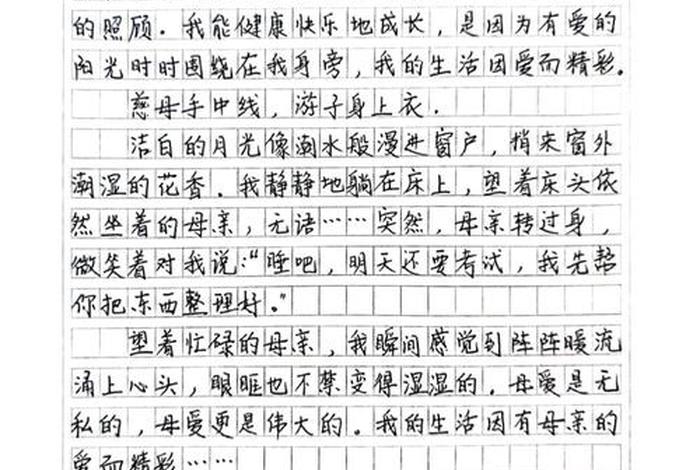 的照顾。我能健康快乐地成长，是因为有爱的
阳光时时围绕在我身旁，我的生活因爱而精彩。
慈母手中线，游子身上衣.
洁白的月光像潮水般漫进窗户，捎来窗外
潮湿的花香。我静静地躺在床上，望着床头依
然坐着的母亲，无语……突然，母亲转过身，
微笑着对我说:“睡吧，明天还要考试，我先帮
你把东西整理好。”
望着忙碌的母亲，我瞬间感觉到阵阵暖流
涌上心头，眼眶也不禁变得湿湿的。母爱是无
私的，母爱更是伟大的。我的生活因有母亲的
爱而精彩……